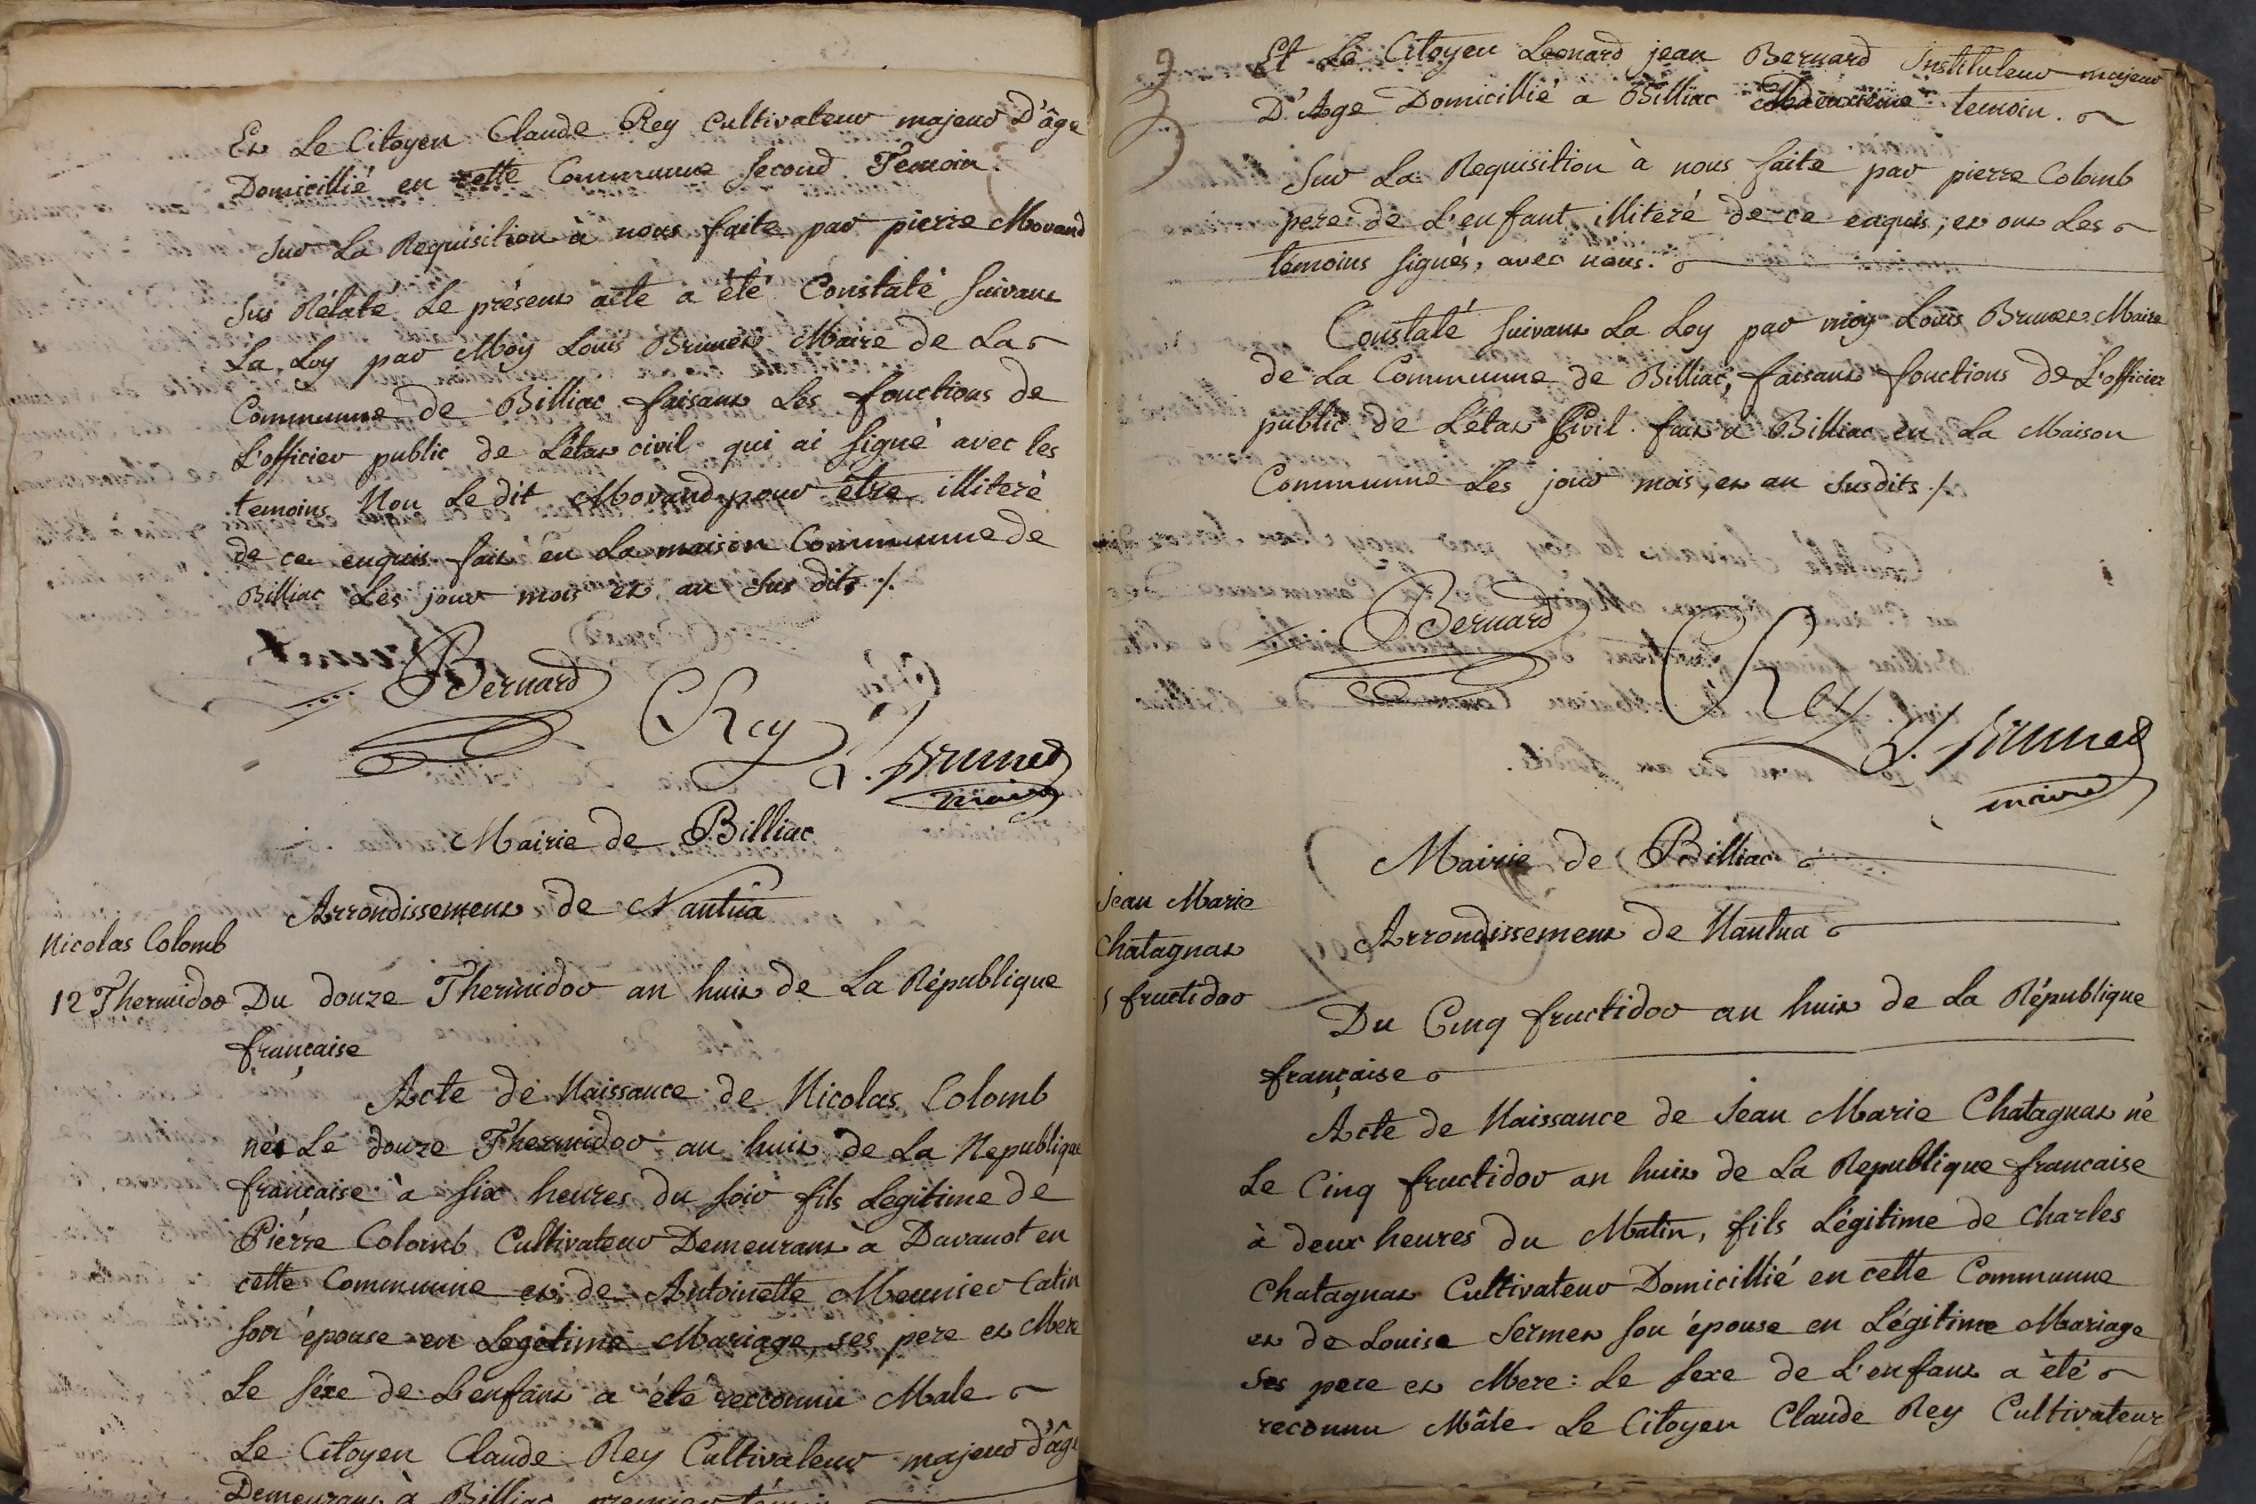 Et Le Citoyen Claude Rey Cultivateur majeur D'âge
Domicillié en cette Commune Second Temoin.
Sur La Requisition à nous faite par pierre Morand
Sus Rélaté Le présent acte a été Constaté Suivant
La Loy par Moy Louis Brunet Maire de La
Commune de Billiac faisant Les fonctions de
L'officier public de L'état civil qui ai Signé avec les
temoins Non Le dit Morand pour être illiteré
de ce enquis. fait en La maison Commune de
Billiac Les jour mois et an Sus dits ./.
Bernard
CRey
L. Brunet
maire
Mairie de Billiac
Arrondissement de Nantua
Nicolas Colomb
12 Thermidor
Du douze Thermidor an huit de La République
française
Acte de Naissance de Nicolas Colomb
né Le douze Thermidor an huit de La Republique
française à Six heures du Soir fils Legitime de
Pierre Colomb Cultivateur Demeurant à Davanot en
cette Commune et de Antoinette Meunier Catin
Son épouse en Legetime Mariage, ses pere et Mere
Le Séxe de L'enfant a été recconnu Male
Le Citoyen Claude Rey Cultivateur majeur d'âge
Demeurant à Billiac premier témoin
Et Le Citoyen Leonard jean Bernard Instituteur majeur
D'Age Domicillié a Billiac deuxieme temoin.
Sur La Requisition à nous faite par pierre Colomb
pere de L'enfant illiteré de ce enquis, et ont Les
témoins Signés, avec nous.
Constaté Suivant La Loy par moy Louis Brunet Maire
de La Commune de Billiac, faisant fonctions de L'officier
public de L'état Civil. fait a Billiac en La Maison
Commune Les jour mois, et an Susdits ./.
Bernard
CRey
L. Brunet
maire
Mairie de Billiac
Arrondissement de Nantua
Jean Marie
Chatagnat
5 fructidor
Du Cinq fructidor an huit de La République
française
Acte de Naissance de Jean Marie Chatagnat né
Le Cinq fructidor an huit de La Republique francaise
à deux heures du Matin, fils Légitime de Charles
Chatagnat Cultivateur Domicillié en cette Commune
et de Louise Sermet Son épouse en Légitime Mariage
Ses pere et Mere: Le Sexe de L'enfant a été
reconnu Mâle Le Citoyen Claude Rey Cultivateur